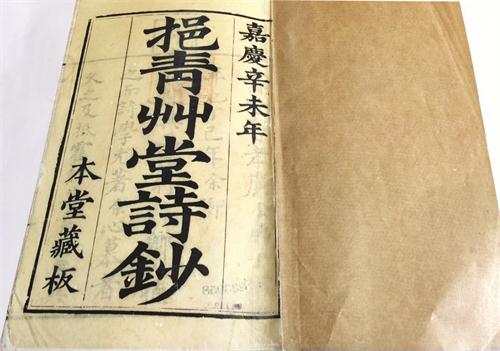 嘉慶辛未年
挹青艸堂詩鈔
本堂藏板